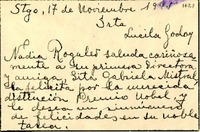 Stgo, 17 de Noviembre 1945
Srta
Lucila Godoy
Nadia Rogalez saluda cariñosa
mente a su primera Directora
y amiga, Srta Gabriela Mistral
la felicita por la merecida
distinción Premio Nobel, y
le desea un sinnúmero
de felicidades en su noble
tarea.